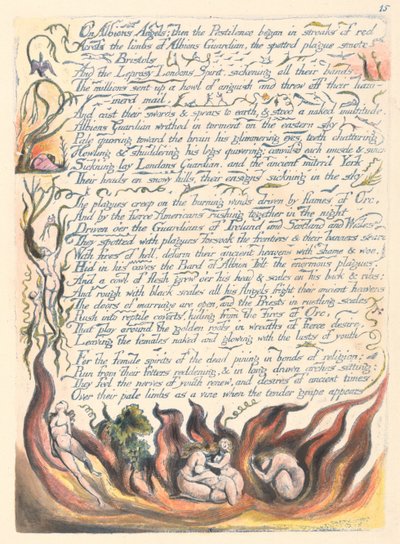 15
On Albions Angels; then the Pestilence began in streaks of red
Across the limbs of Albions Guardian, the spotted plague smote
Bristols
And the Leprosy Londons Spirit, sickening all their bands:
The millions sent up a howl of anguish and threw off their ham-
merd mail,
And cast their swords & spears to earth, & stood a naked multitude.
Albions Guardian writhed in torment on the eastern sky
Pale quivring toward the brain his glimmering eyes, teeth chattering
Howling & shuddering his legs quivering; convuls'd each muscle & sinew
Sick'ning lay Londons Guardian, and the ancient miter'd York
Their heads on snowy hills, their ensigns sick'ning in the sky
The plagues creep on the burning winds driven by flames of Orc,
And by the fierce Americans rushing together in the night
Driven o'er the Guardians of Ireland and Scotland and Wales
They spotted with plagues forsook the frontiers & their banners seard
With fires of hell, deform their ancient heavens with shame & woe.
Hid in his caves the Bard of Albion felt the enormous plagues.
And a cowl of flesh grew o'er his head & scales on his back & ribs;
And rough with black scales all his Angels fright their ancient heavens
The doors of marriage are open, and the Priests in rustling scales
Rush into reptile coverts, hiding from the fires of Orc,
That play around the golden roofs in wreaths of fierce desire,
Leaving the females naked and glowing with the lusts of youth
For the female spirits of the dead pining in bonds of religion;
Run from their fetters reddening, & in long drawn arches sitting:
They feel the nerves of youth renew, and desires of ancient times,
Over their pale limbs as a vine when the tender grape appears